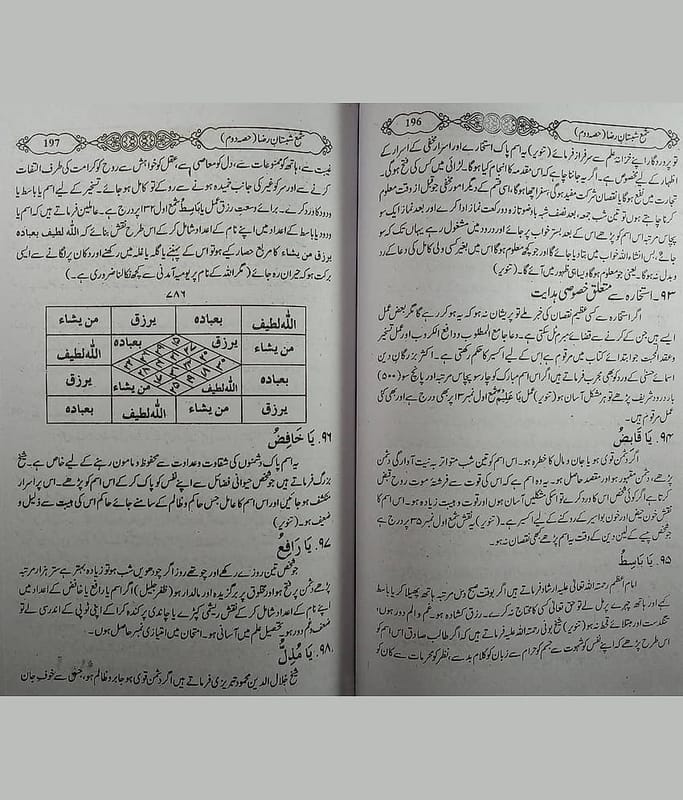 196
شمع شبستان رضا (حصہ دوم)
تو پروردگار اپنے خزانۂ علم سے سرفراز فرمائے (تنویر) یہ اسم پاک استخارے اور اسرار مخفی کے اسرار کے
اظہار کے لیے مخصوص ہے۔ اگر یہ جاننا چاہے کہ اس مقدمہ کا انجام کیا ہوگا۔ لڑائی میں کس کی فتح ہوگی۔
تجارت میں نفع ہوگا یا نقصان شرکت مفید ہوگی سفر اچھا ہوگا، اسی قسم کے دیگر امور مخفی جو قبل از وقت معلوم
کرنا چاہتے ہوں تو تین شب جمعہ بعد نصف شب یا وضو تازہ دو رکعت نماز ادا کرے اور بعد نماز ایک سو
پچاس مرتبہ اس اسم کو پڑھے اس کے بعد بستر خواب پر جائے اور درود میں مشغول رہے یہاں تک کہ سو
جائے بس انشاء اللہ خواب میں بتا دیا جائے گا اور جو کچھ معلوم ہوگا اس میں بغیر کسی ولی کامل کی دعا کے رد
و بدل نہ ہوگا۔ یعنی جو معلوم ہوگا ویسا ہی ظہور میں آئے گا۔ (تنویر)
۹۳۔ استخارہ سے متعلق خصوصی ہدایت
اگر استخارہ سے کسی عظیم نقصان کی خبر ملے تو پریشان نہ ہو کہ یہ ہو کر رہے گا مگر بعض عمل
ایسے ہیں جن کے کرنے سے قضائے مبرم ٹل سکتی ہے۔ دعا جامع المطلوب و دافع الکروب اور عمل تسخیر
وعقد المحبت جو ابتدائے کتاب میں مرقوم ہے اس کے لیے اکسیر کا حکم رکھتی ہے۔ اکثر بزرگان دین
اسمائے حسنٰی کے ورد کو بھی مجرب فرماتے ہیں اگر اس اسم مبارک کو چار سو پچاس مرتبہ اور پانچ سو (۵۰۰)
بار درود شریف پڑھے تو ہر مشکل آسان ہو (تنویر) عمل یَا عَلِیْمُ شمع اول نمبر ۱۳ پر بھی درج ہے اور بھی کئی
عمل مرقوم ہیں۔
۹۴۔ یَا قَابِضُ
اگر دشمن قوی ہو یا جان و مال کا خطرہ ہو۔ اس اسم کو تین شب متواتر بہ نیت آوارگی دشمن
پڑھے، دشمن مقہور ہو اور مقصد حاصل ہو۔ یہ وہ اسم ہے کہ اس کی قوت سے فرشتۂ موت روح قبض
کرتا ہے اگر کوئی شخص اس کا ورد کرے تو اسکی مشکلیں آسان ہوں اور قوت و ہیبت زیادہ ہو۔ اس اسم کا
نقش خون حیض اور خون بواسیر کے روکنے کے لیے اکسیر ہے۔ (تنویر) یہ نقش شمع اول نمبر ۳۵ پر درج ہے
جو شخص پیسے کے لین دین کے وقت یہ اسم پڑھے کبھی نقصان نہ ہو۔
۹۵۔ یَا بَاسِطُ
امام اعظم رحمۃ اللہ تعالیٰ علیہ ارشاد فرماتے ہیں اگر بوقت صبح دس مرتبہ ہاتھ پھیلا کر یا باسط
کہے اور ہاتھ چہرے پر مل لے تو حق تعالیٰ کسی کا محتاج نہ کرے۔ رزق کشادہ ہو۔ غم و الم دور ہوں،
تنگدستی اور مبتلائے قحط نہ ہو (تنویر) شیخ بونی رحمۃ اللہ علیہ فرماتے ہیں کہ اگر طالب صادق اس اسم کو
اس طرح پڑھے کہ اپنے نفس کو شہوت سے جسم کو حرام سے زبان کو کلام بد سے، نظر کو محرمات سے کان کو
197
شمع شبستان رضا (حصہ دوم)
غیبت سے، ہاتھ کو ممنوعات سے، دل کو معاصی سے، عقل کو خواہش سے روح کو کرامت کی طرف التفات
کرنے سے اور سر کو غیر کی جانب خمیدہ ہونے سے روکے تو کامل ہو جائے۔ تسخیر کے لیے اسم یا باسط یا
ودود کا ورد کرے۔ برائے وسعت رزق عمل یَا بَاسِطُ شمع اول ۱۳۲ پر درج ہے۔ عاملین فرماتے ہیں کہ اسم یا
ودود یا باسط کے اعداد میں اپنے نام کے اعداد شامل کر کے اس طرح نقش بنائے کہ اللہ لطیف بعبادہ
یرزق من یشاء کا مربع حصار کیے ہو تو اس کے پہننے یا گلہ یا غلہ میں رکھنے اور دکان پر لگانے سے ایسی
برکت ہو کہ حیران رہ جائے (مگر اللہ کے نام پر یومیہ آمدنی سے کچھ نکالنا ضروری ہے۔)
۷۸۶
اللہ لطیف بعبادہ یرزق من یشاء
من یشاء یرزق بعبادہ اللہ لطیف
بعبادہ اللہ لطیف من یشاء یرزق
یرزق من یشاء اللہ لطیف بعبادہ
۹۶۔ یَا خَافِضُ
یہ اسم پاک دشمنوں کی شقاوت و عداوت سے محفوظ و مامون رہنے کے لیے خاص ہے۔ شیخ
بزرگ فرماتے ہیں جو شخص حیوانی فضائل سے اپنے نفس کو پاک کر کے اس اسم کو پڑھے۔ اس پر اسرار
منکشف ہو جائیں اور اس اسم کا عامل، جس حاکم و ظالم کے سامنے جائے حاکم اس کی ہیبت سے ذلیل و
ضعیف ہو۔ (تنویر)
۹۷۔ یَا رَافِعُ
جو شخص تین روزے رکھے اور چوتھے روز اگر چودھویں شب ہو تو زیادہ بہتر ہے ستر ہزار مرتبہ
پڑھے دشمن پر فتح ہو اور مخلوق پر برگزیدہ اور مالدار ہو (ظفر جلیل) اگر اسم یا رافع یا خافض کے اعداد میں
اپنے نام کے اعداد شامل کر کے نقش ریشمی کپڑے یا چاندی پر کندہ کرا کے اپنی ٹوپی کے اندر سی لے تو
ضعف و غم دور ہو۔ تحصیل علم میں آسانی ہو۔ امتحان میں امتیازی نمبر حاصل ہوں۔
۹۸۔ یَا مُذِلُّ
شیخ جلال الدین محمود تبریزی فرماتے ہیں اگر دشمن قوی ہو جابر و ظالم ہو، جس سے خوف جان